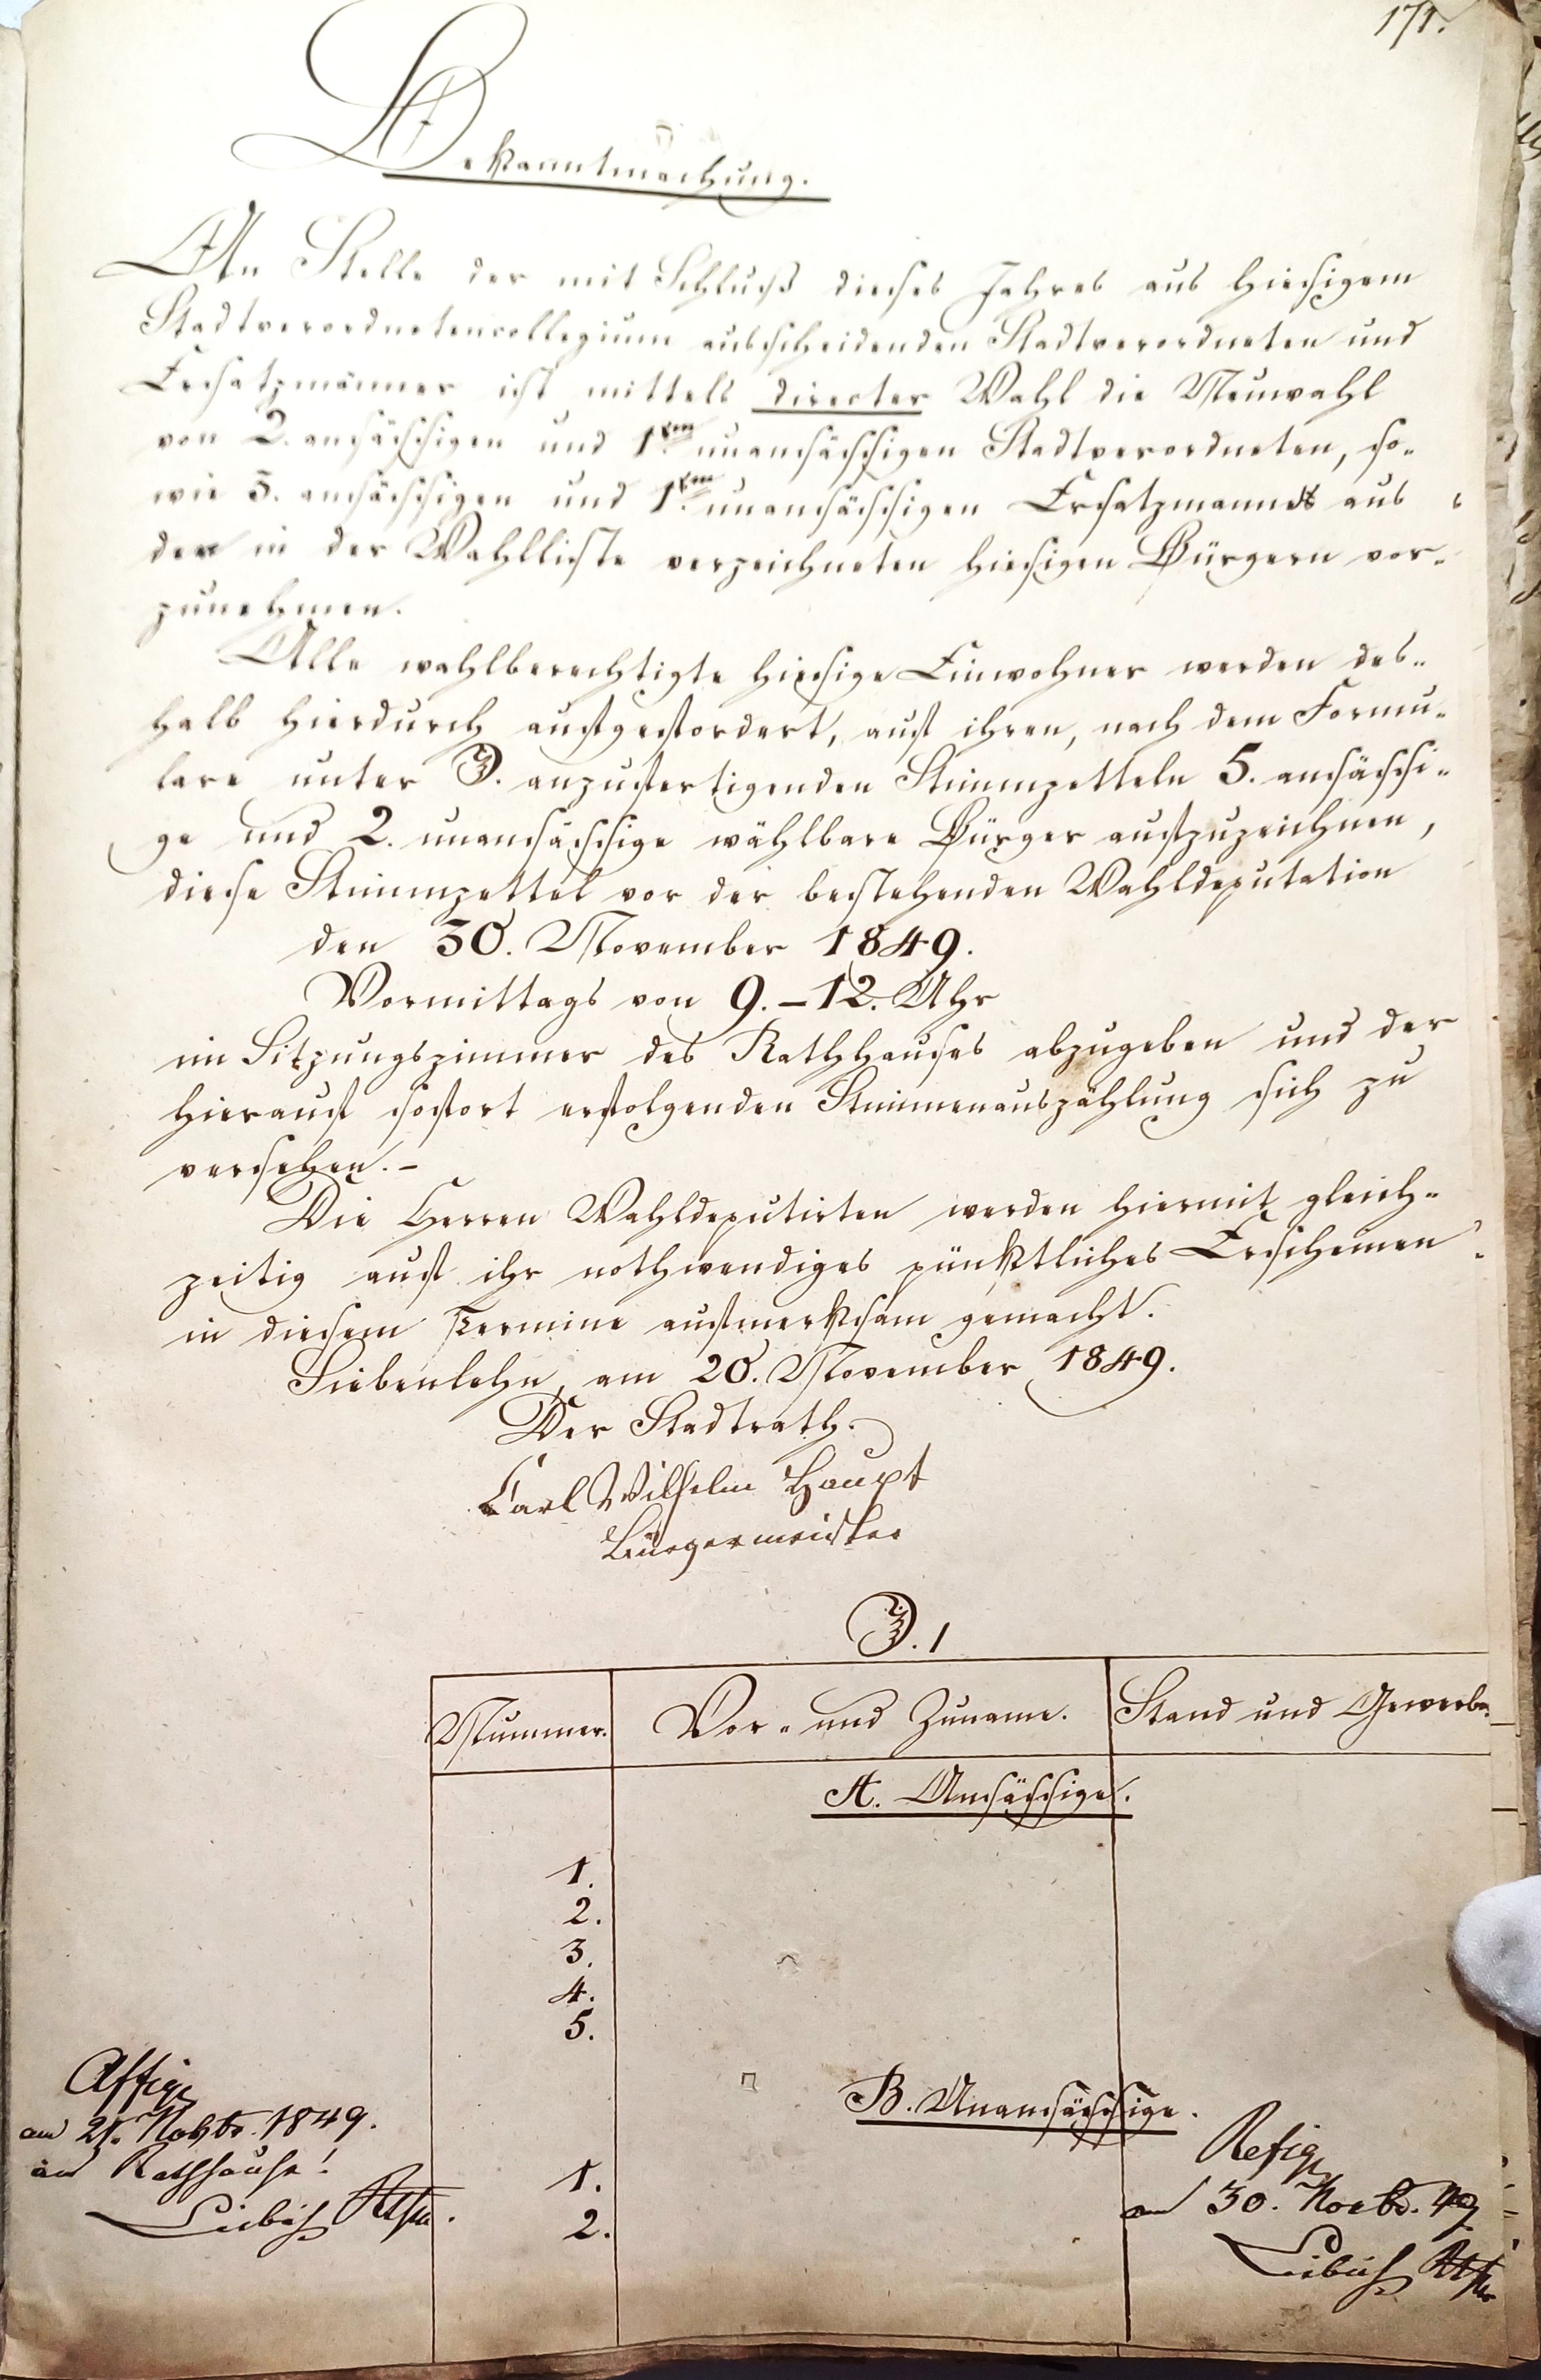 171.
Bekanntmachung.
An Stelle der mit Schluß dieses Jahres aus hiesigem
Stadtverordnetencollegium ausscheidenden Stadtverordneten und
Ersatzmänner ist mittels directer Wahl die Neuwahl
von 2. ansässigen und 1em unansässigen Stadtverordneten, so-
wie 3. ansässigen und 1em unansässigen Ersatzmannes aus
den in der Wahlliste verzeichneten hiesigen Bürgern vor-
zunehmen.
Alle wahlberechtigte hiesige Einwohner werden des-
halb hierdurch aufgefordert, auf ihren, nach dem Formu-
lare unter D. anzufertigenden Stimmzetteln 5. ansässi-
ge und 2. unansässige wählbare Bürger aufzuzeichnen,
diese Stimmzettel vor der bestehenden Wahldeputation
den 30. November 1849.
Vormittags von 9.-12. Uhr
im Sitzungszimmer des Rathhauses abzugeben und der
hierauf sofort erfolgenden Stimmenauszählung sich zu
versehen.-
Die Herren Wahldeputirten werden hiermit gleich-
zeitig auf ihr nothwendiges pünktliches Erscheinen
in diesem Termine aufmerksam gemacht.
Siebenlehn, am 20. November 1849.
Der Stadtrath.
Carl Wilhelm Haupt
Bürgermeister
D. 1
Nummer. Vor- und Zuname. Stand und Gewerbe.
A. Ansässige.
1.
2.
3.
4.
5.
B. Unansässige.
1.
2.
Affig.
am 21. Novbr. 1849.
am Rathhause!
Refig.
am 30. Novbr. 49